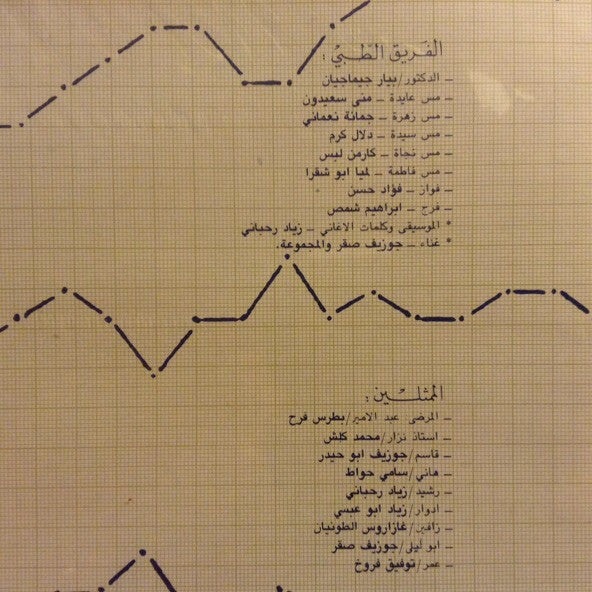 الفريق الطبي:
– الدكتور/بيار جيماجيان
– مس عايدة – منى سعيدون
– مس زهرة – جمانة نعماني
– مس سيدة – دلال كرم
– مس نجاة – كارمن لبس
– مس فاطمة – لميا ابو شقرا
– فواز – فؤاد حسن
– فرج – ابراهيم شمص
* الموسيقى وكلمات الاغاني – زياد رحباني
* غناء – جوزيف صقر والمجموعة.
الممثلين:
– المرضى عبد الامير/بطرس فرح
– استاذ نزار/محمد كلش
– قاسم/جوزيف ابو حيدر
– هاني/سامي حواط
– رشيد/زياد رحباني
– ادوار/زياد ابو عبسي
– زافين/غازاروس الطونيان
– ابو ليلى/جوزيف صقر
– عمر/توفيق فروخ